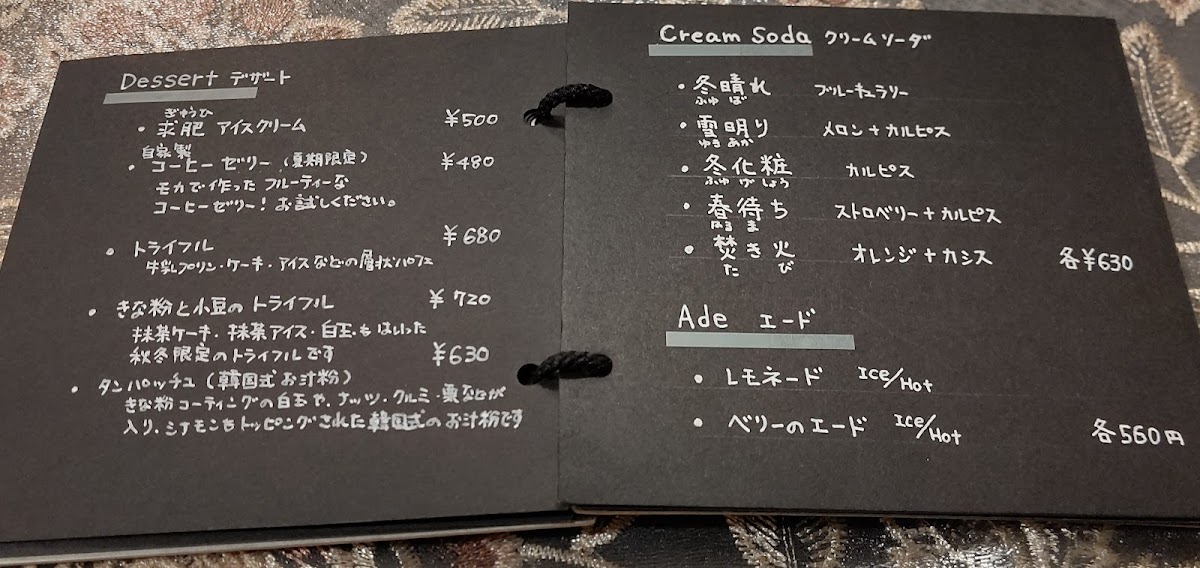 Dessert デザート
ぎゅうひ
・求肥 アイスクリーム ¥500
自家製
・コーヒーゼリー(夏期限定) ¥480
モカで作ったフルーティーな
コーヒーゼリー!お試しください。
・トライフル ¥680
牛乳プリン・ケーキ・アイスなどの層状パフェ
・きな粉と小豆のトライフル ¥720
抹茶ケーキ・抹茶アイス・白玉もはいった
秋冬限定のトライフルです
・タンパッチュ(韓国式お汁粉) ¥630
きな粉コーティングの白玉や、ナッツ・クルミ・栗などが
入り、シナモンもトッピングされた韓国式のお汁粉です
Cream Soda クリームソーダ
・冬晴れ ブルーキュラソー
ふゆば
・雪明り メロン+カルピス
ゆきあか
・冬化粧 カルピス
ふゆげしょう
・春待ち ストロベリー+カルピス
はるま
・焚き火 オレンジ+カシス 各¥630
たび
Ade エード
・レモネード Ice/Hot
・ベリーのエード Ice/Hot 各560円